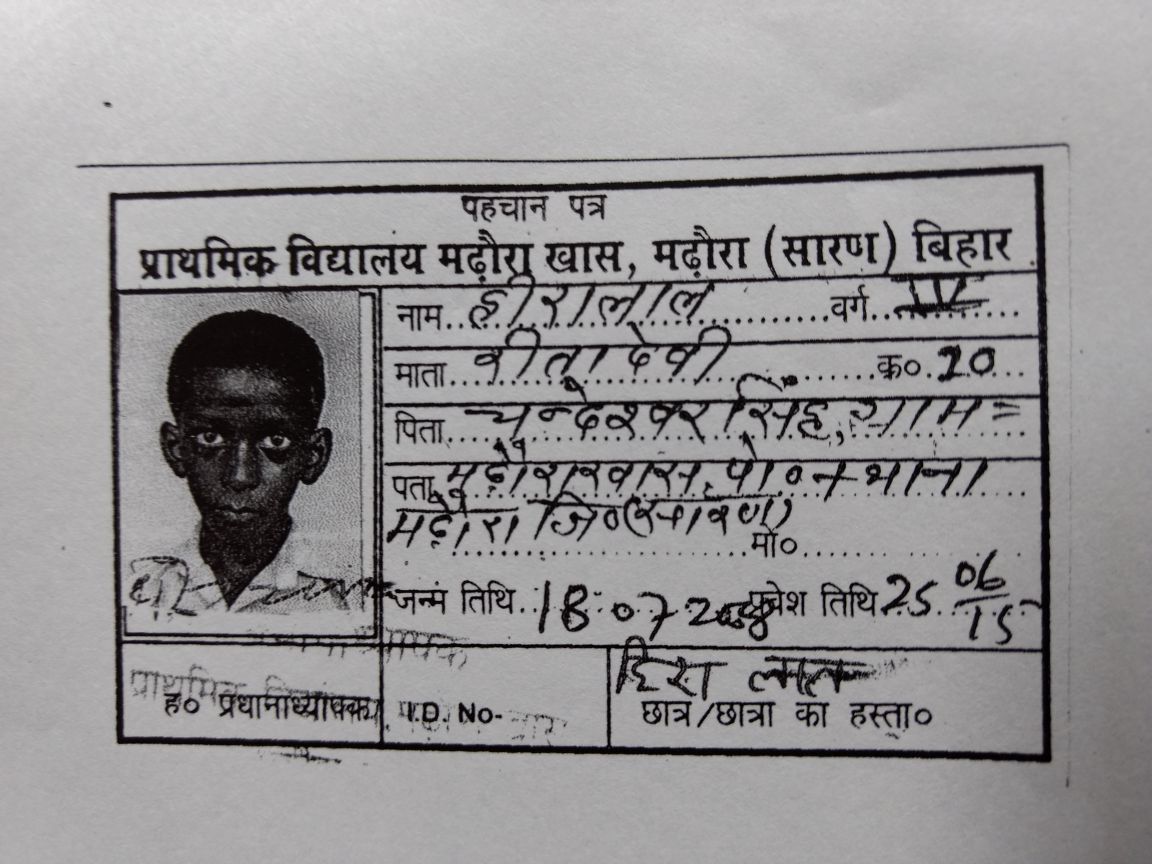 पहचान पत्र
प्राथमिक विद्यालय मढ़ौरा खास, मढ़ौरा (सारण) बिहार
नाम.. हीरालाल ........... वर्ग.. IV ......
माता... देवी ........... क्र०. 20 ...
पिता.... चन्देश्वर सिंह, ग्राम =
पता. मढ़ौराखास, पो० + थाना
मढ़ौरा जि०(सारण)
मो०..............
जन्म तिथि.. 18.07.2008 प्रवेश तिथि 25.06/15
हिरा लाल
ह० प्रधानाध्यापक I.D. No- छात्र/छात्रा का हस्ता०